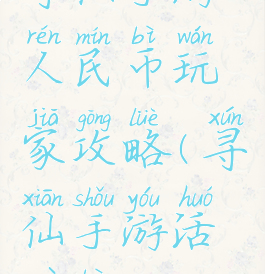 rén mín bì wán
人民币玩
jiā gōng lüè xún
家攻略(寻
xiān shǒu yóu huó
仙手游活